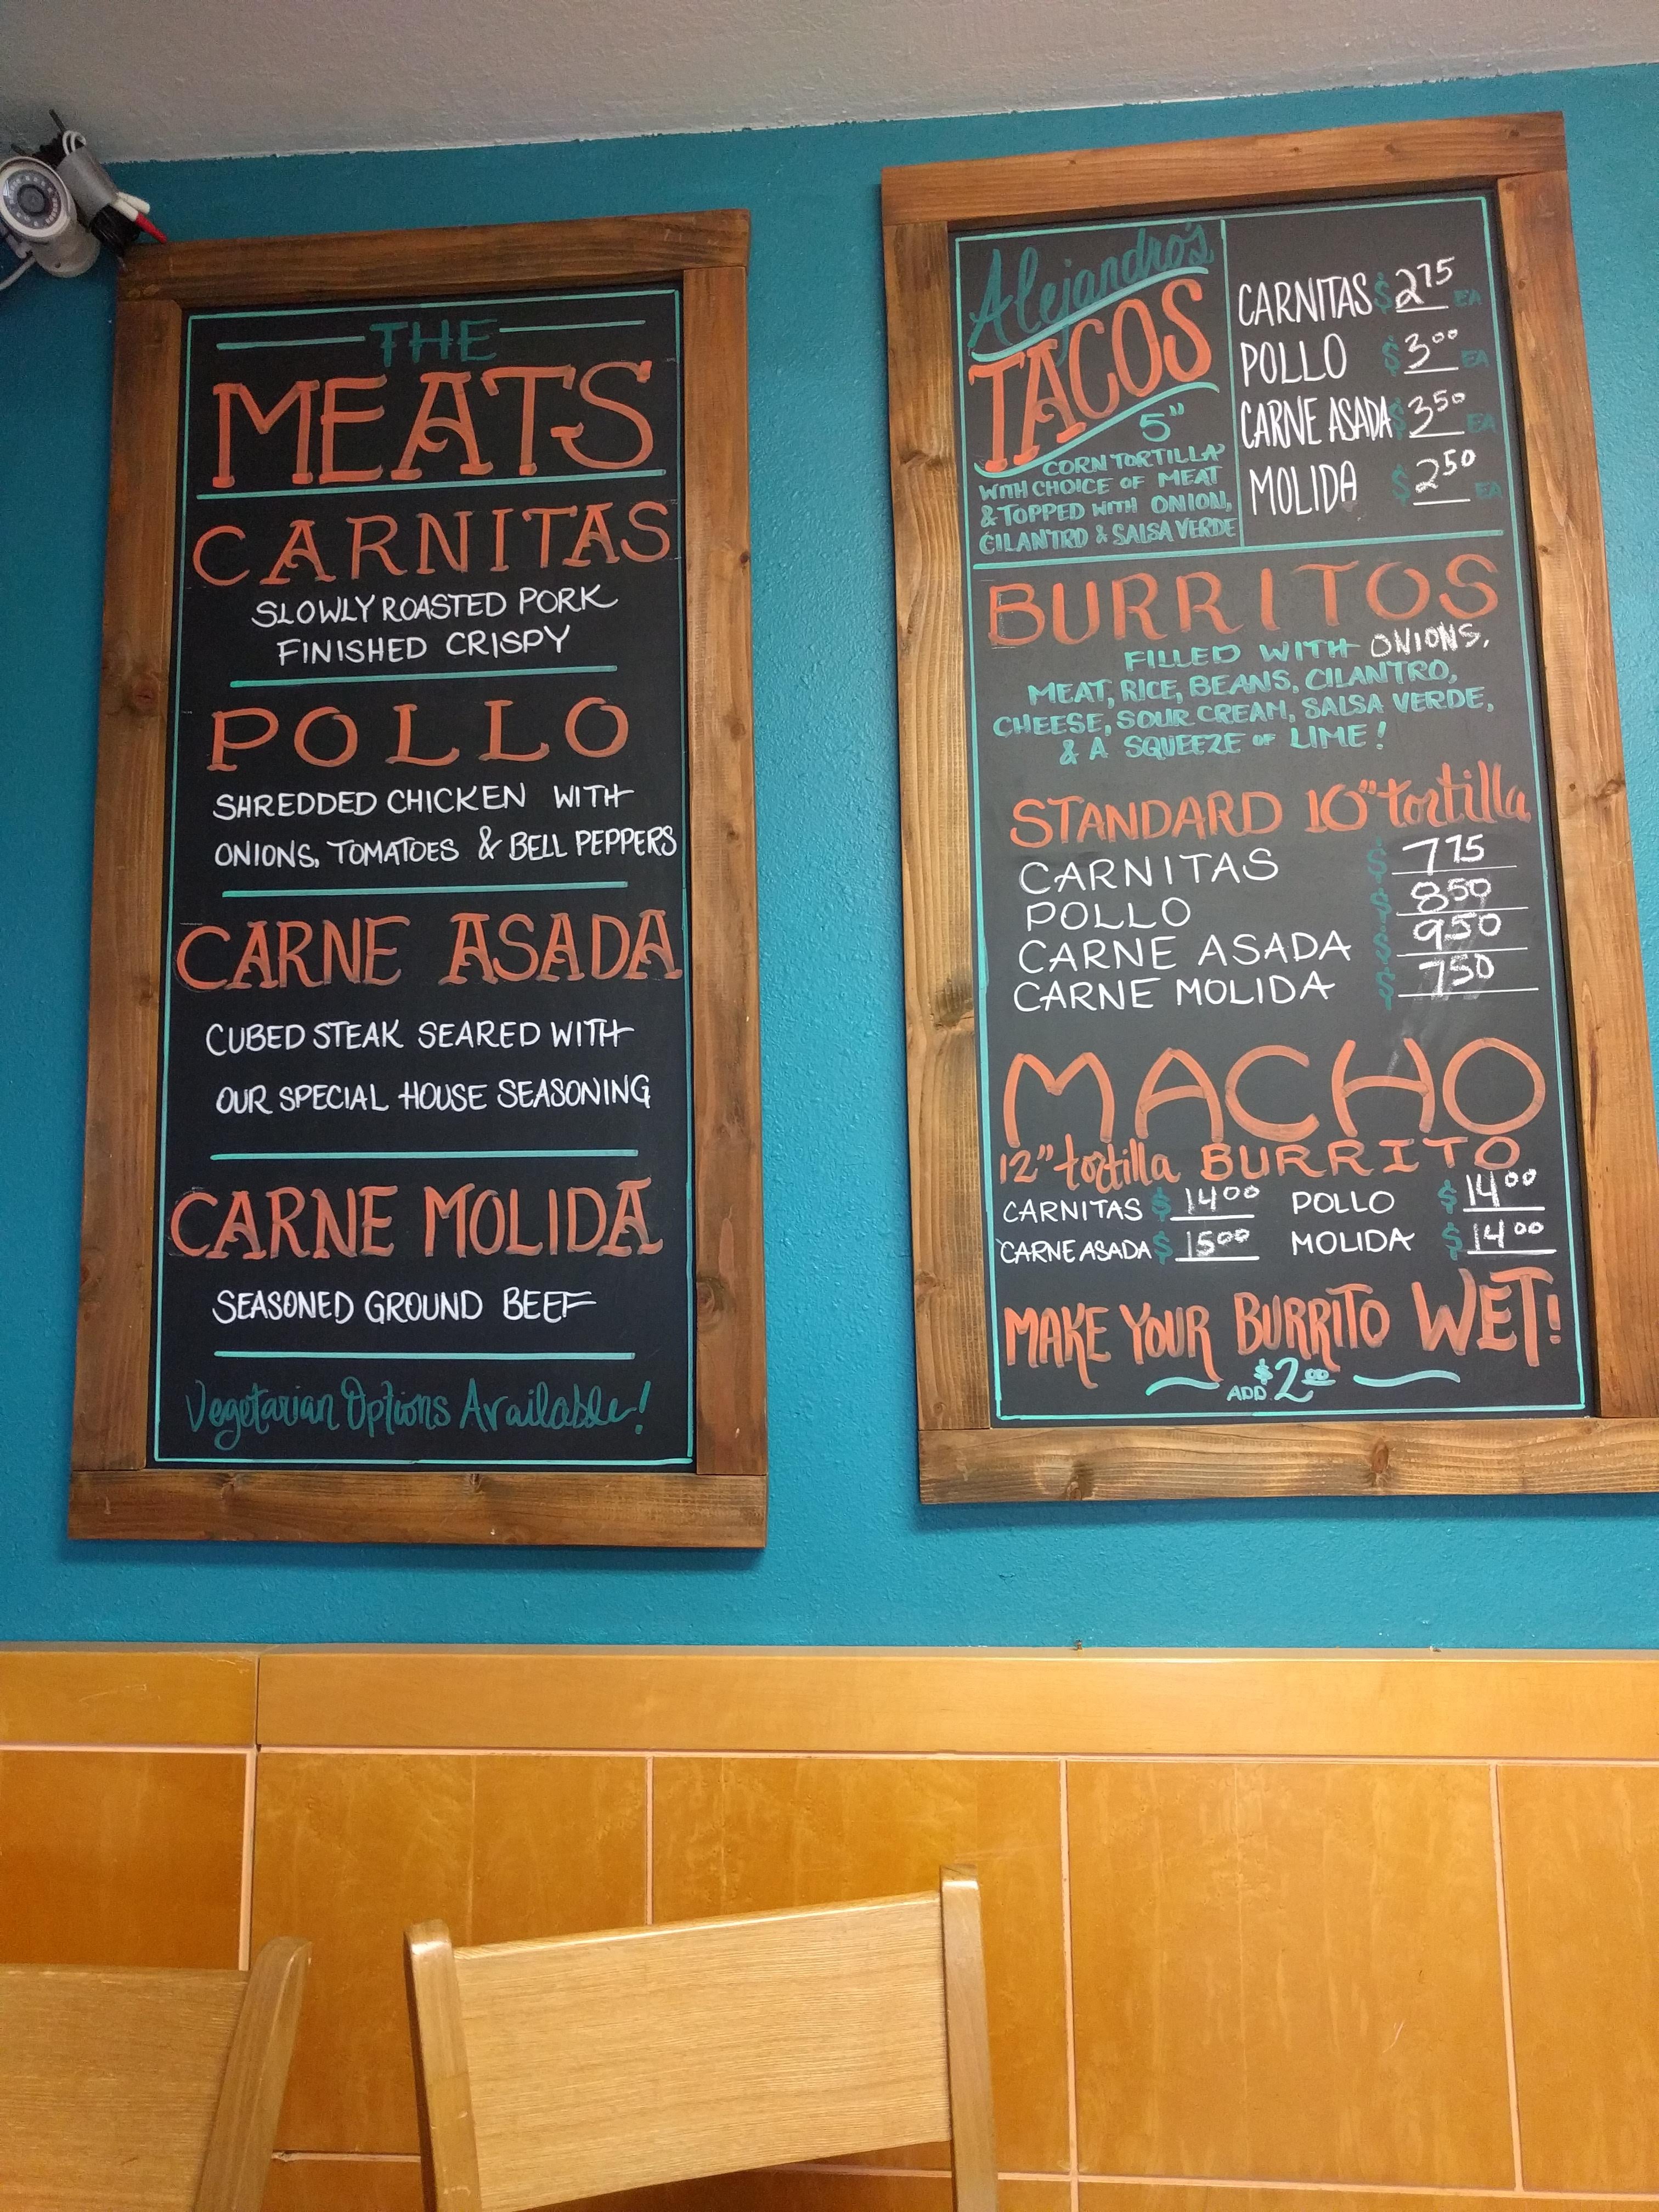 THE
MEATS
CARNITAS
SLOWLY ROASTED PORK
FINISHED CRISPY
POLLO
SHREDDED CHICKEN WITH
ONIONS, TOMATOES & BELL PEPPERS
CARNE ASADA
CUBED STEAK SEARED WITH
OUR SPECIAL HOUSE SEASONING
CARNE MOLIDA
SEASONED GROUND BEEF
Vegetarian Options Available!
Alejandro's
TACOS
5"
CORN TORTILLA
WITH CHOICE OF MEAT
& TOPPED WITH ONION,
CILANTRO & SALSA VERDE
CARNITAS $2.75 EA
POLLO $3.00 EA
CARNE ASADA $3.50 EA
MOLIDA $2.50 EA
BURRITOS
FILLED WITH ONIONS,
MEAT, RICE, BEANS, CILANTRO,
CHEESE, SOUR CREAM, SALSA VERDE,
& A SQUEEZE OF LIME!
STANDARD 10" tortilla
CARNITAS $ 775
POLLO $ 850
CARNE ASADA $ 950
CARNE MOLIDA $ 750
MACHO
12" tortilla BURRITO
CARNITAS $ 1400 POLLO $ 1400
CARNE ASADA $ 1500 MOLIDA $ 1400
MAKE YOUR BURRITO WET!
ADD $2.00